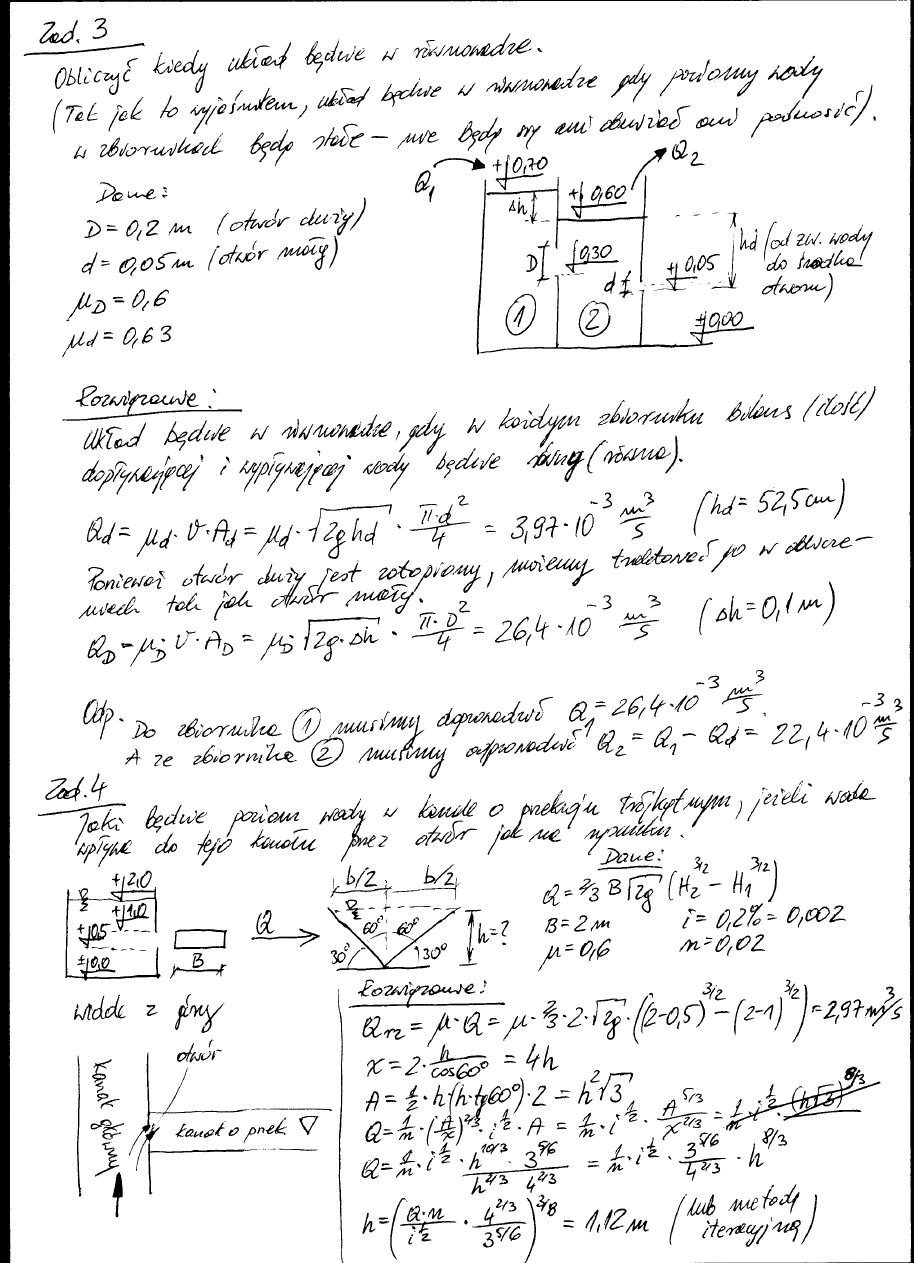 Zad. 3
Obliczyć kiedy układ będzie w równowadze.
(Tak jak to wyjaśniłem, układ będzie w równowadze gdy poziomy wody
w zbiornikach będą stałe – nie będą się ani obniżać ani podnosić).
Dane:
D = 0,2 m (otwór duży)
d = 0,05 m (otwór mały)
μD = 0,6
μd = 0,63
Q1
+0,70
Q2
Δh
+0,60
D
0,30
d
+0,05
hd (od zw. wody
do środka
otworu)
1
2
±0,00
Rozwiązanie:
Układ będzie w równowadze, gdy w każdym zbiorniku bilans (ilość)
dopływającej i wypływającej wody będzie (równa).
Qd = μd · V · Ad = μd · √2ghd · π·d²/4 = 3,97·10⁻³ m³/s (hd = 52,5 cm)
Ponieważ otwór duży jest zatopiony, możemy traktować go w oblicze-
niach tak jak otwór mały.
QD = μD · V · AD = μD · √2g·Δh · π·D²/4 = 26,4·10⁻³ m³/s (Δh = 0,1 m)
Odp. Do zbiornika 1 musimy doprowadzić Q1 = 26,4·10⁻³ m³/s.
A ze zbiornika 2 musimy odprowadzić Q2 = Q1 – Qd = 22,4·10⁻³ m³/s
Zad. 4
Jaki będzie poziom wody w kanale o przekroju trójkątnym, jeżeli woda
wpływa do tego kanału przez otwór jak na rysunku.
+2,0
+1,0
+0,5
±0,0
B
Q
b/2 b/2
60° 60°
30° 30°
h=?
Dane:
Q = 2/3 B√2g (H₂^3/2 – H₁^3/2)
B = 2 m i = 0,2% = 0,002
μ = 0,6 n = 0,02
widok z góry
otwór
Kanał główny
kanał o przek. ▽
Rozwiązanie:
Qrz = μ · Q = μ · 2/3 · 2 · √2g · ((2-0,5)^3/2 – (2-1)^3/2) = 2,97 m³/s
x = 2 · h/cos60° = 4h
A = 1/2 · h(h·tg60°) · 2 = h²√3
Q = 1/n · (A/x)^2/3 · i^1/2 · A = 1/n · i^1/2 · A^5/3/x^2/3 = 1/n · i^1/2 · (h√3)^8/3
Q = 1/n · i^1/2 · h^10/3 · 3^5/6 / h^2/3 · 4^2/3 = 1/n · i^1/2 · 3^5/6/4^2/3 · h^8/3
h = (Q·n/i^1/2 · 4^2/3/3^5/6)^3/8 = 1,12 m (lub metodą
iteracyjną)